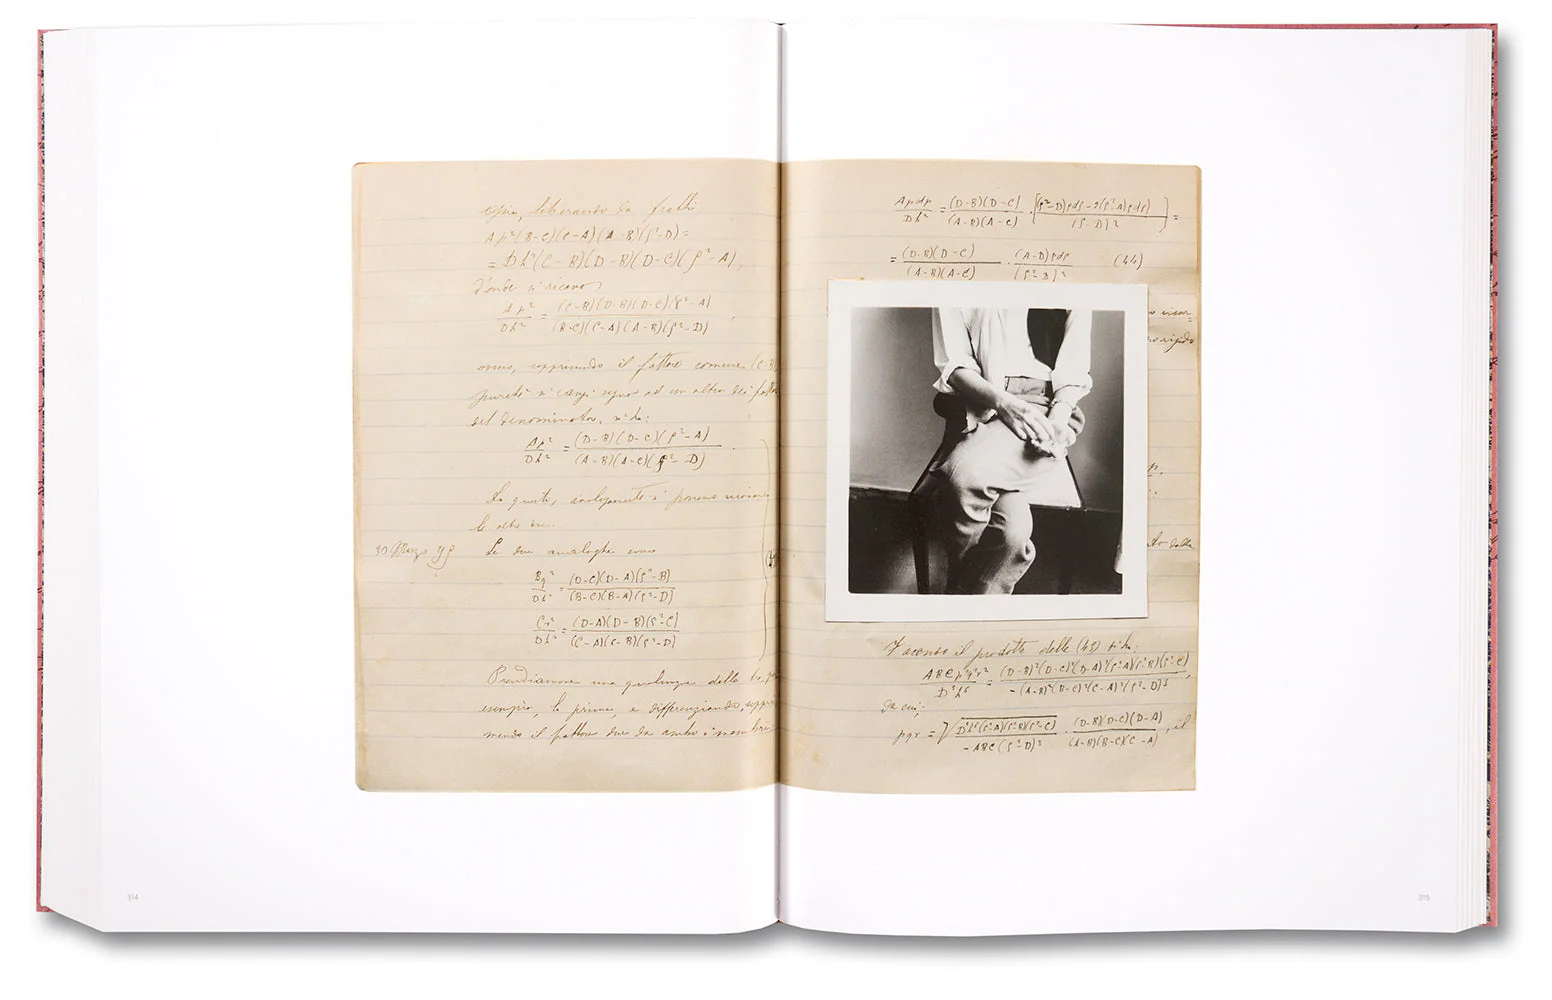 liberando da fratti
Ap²(B-C)(C-A)(A-B)(ρ²-D)=
=Dh²(C-B)(D-B)(D-C)(ρ²-A),
donde si ricava
Ap²/Dh² = (C-B)(D-B)(D-C)(ρ²-A)/(B-C)(C-A)(A-B)(ρ²-D)
ossia, sopprimendo il fattore comune (C-B)
purchè si cangi segno ad un altro dei fattori
del denominatore, si ha:
Ap²/Dh² = (D-B)(D-C)(ρ²-A)/(A-B)(A-C)(ρ²-D)
Da questa, si possono ricavare
le altre
Le due analoghe sono
Bq²/Dh² = (D-C)(D-A)(ρ²-B)/(B-C)(B-A)(ρ²-D)
Cr²/Dh² = (D-A)(D-B)(ρ²-C)/(C-A)(C-B)(ρ²-D)
Prendiamone una qualunque delle tre, per
esempio, la prima, e differenziando, soppri
mendo il fattore due da ambo i membri:
314
Apdp/Dh² = (D-B)(D-C)/(A-B)(A-C) · [(ρ²-D)ρdρ-(ρ²-A)ρdρ]/(ρ²-D)² =
= (D-B)(D-C)/(A-B)(A-C) · (A-D)ρdρ/(ρ²-D)² (44)
Facendo il prodotto delle (43) si ha:
ABCp²q²r²/D³h⁶ = (D-B)²(D-C)²(D-A)²(ρ²-A)(ρ²-B)(ρ²-C)/-(A-B)²(B-C)²(C-A)²(ρ²-D)³,
da cui;
pqr = √D³h⁶(ρ²-A)(ρ²-B)(ρ²-C)/-ABC(ρ²-D)³ · (D-B)(D-C)(D-A)/(A-B)(B-C)(C-A), il
315